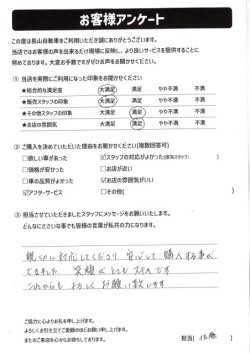 お客様アンケート
この度は長山自動車をご利用いただき誠にありがとうございます。
当店ではお客様の声を出来るだけ現場に反映し、より良いサービスを提供することに
努めております。大変お手数ですがぜひお声をお聞かせください。
① 当店を実際にご利用になった印象をお聞かせください
★総合的な満足度 大満足 満足 やや不満 不満
★販売スタッフの印象 大満足 満足 やや不満 不満
★その他スタッフの印象 大満足 満足 やや不満 不満
★お店の雰囲気 大満足 満足 やや不満 不満
② ご購入を決めていただいた理由をお聞かせください(複数回答可)
□欲しい車があった ☑スタッフの対応がよかった(担当スタッフ: )
□価格が安かった □お店が近い
□車の品質がよかった ☑お店の雰囲気がいい
☑アフターサービス □その他( )
③ 担当させていただきましたスタッフにメッセージをお願いいたします。
どんなにささいな事でも皆様の言葉が私共の力になります。
親切に対応してくださり 安心して 購入する事が
できました。笑顔がとてもステキです
これからも よろしく お願い致します
ご協力に心よりお礼を申し上げます。
よろしくお引き立てご愛顧のほどお願い申し上げます。
またのご来店を心からお待ちしております。
担当( 佐藤 )